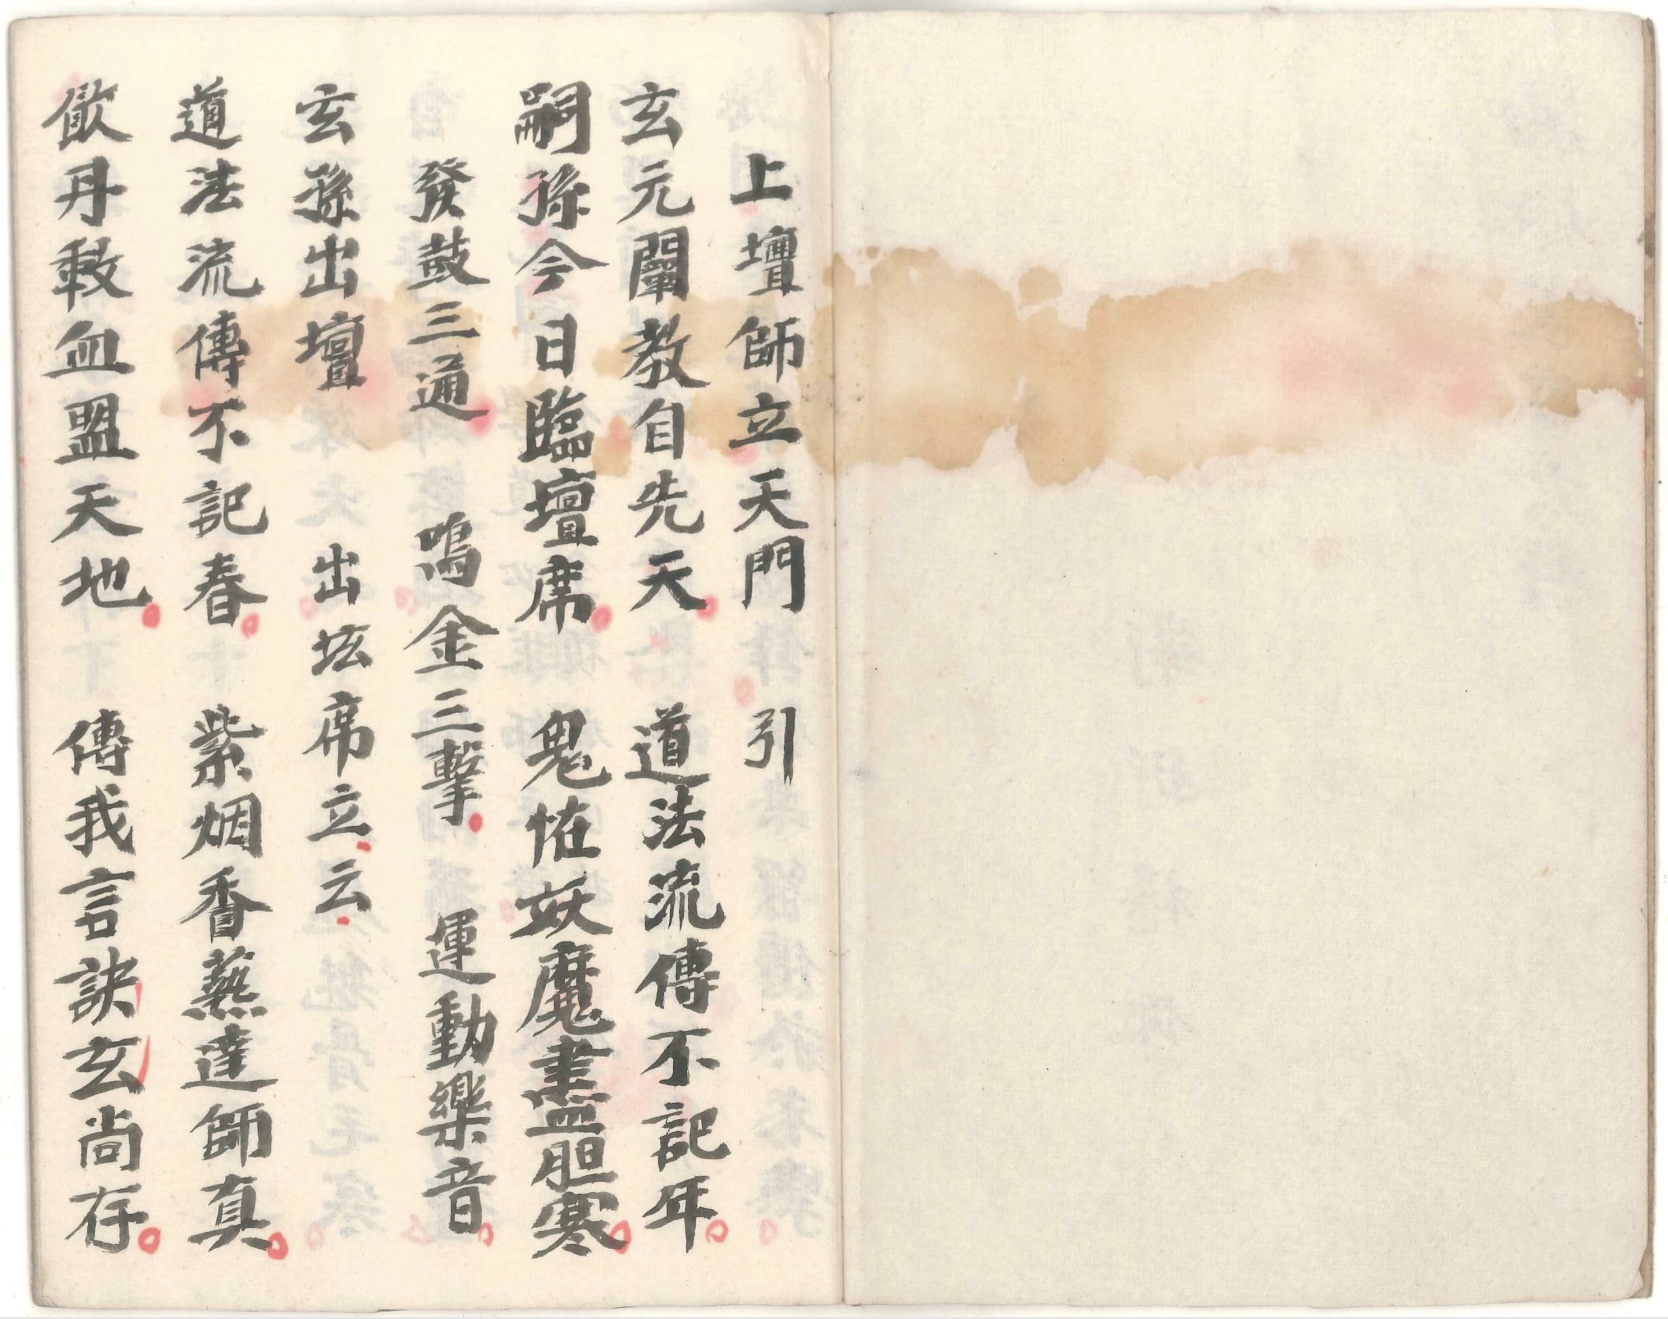 上壇師立天門　引
玄元闡教自先天　道法流傳不記年
嗣孫今日臨壇席　鬼恠妖魔盡胆寒
發鼓三通　鳴金三擊　運動樂音
玄孫出壇　出坛席立云
道法流傳不記春　紫烟香爇達師真
飲丹歃血盟天地　傳我言訣玄尚存